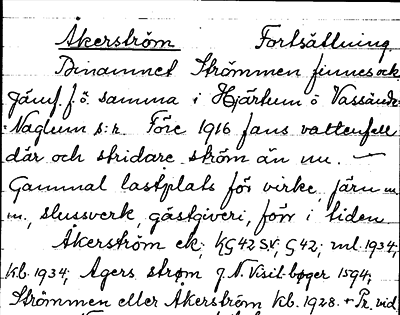 Åkerström Fortsättning
Binamnet Strömmen finnes ock
jämf. f.ö. samma i Hjärtum ö Vassända
Naglum s:n. Före 1916 fans vattenfall
där och stridare ström än nu. —
Gammal lastplats för virke, järn m
m., slussverk, gästgiveri, förr i tiden
Åkerström ek; KG 42 SV; G 42; ml. 1934;
Kb. 1934; Agers strøm N. Visit.bøger 1594;
Strömmen eller Åkerström Kb. 1928. + Tr. vid